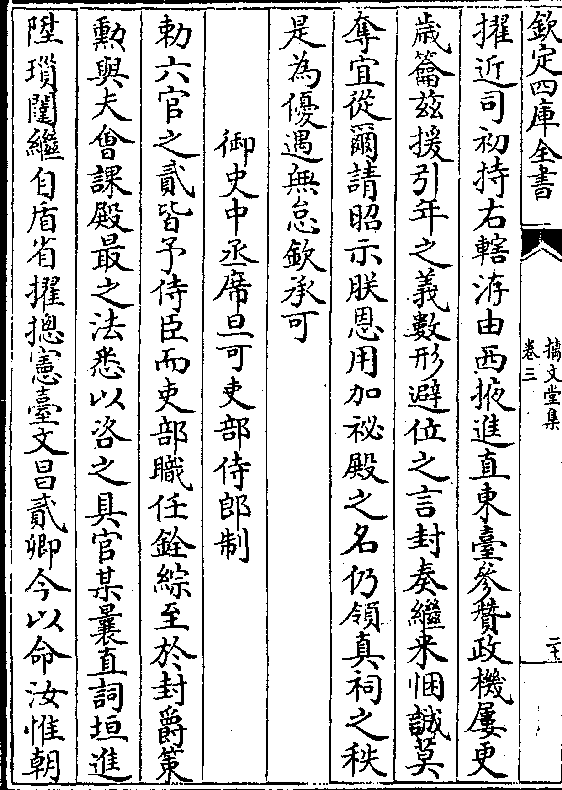 欽定四庫全書
摛文堂集
卷三
擢近司初持右轄洊由西掖進直東臺參贊政機屢更
歲籥兹援引年之義數形避位之言封奏繼來悃誠莫
奪宜從爾請昭示朕恩用加祕殿之名仍領真祠之秩
是為優遇無怠欽承可
御史中丞席旦可吏部侍郎制
勅六官之貳皆予侍臣而吏部職任銓綜至於封爵策
勲與夫會課殿最之法悉以咨之具官某曩直詞垣進
陞瑣闥繼自右省擢摠憲臺文昌貳卿今以命汝惟朝